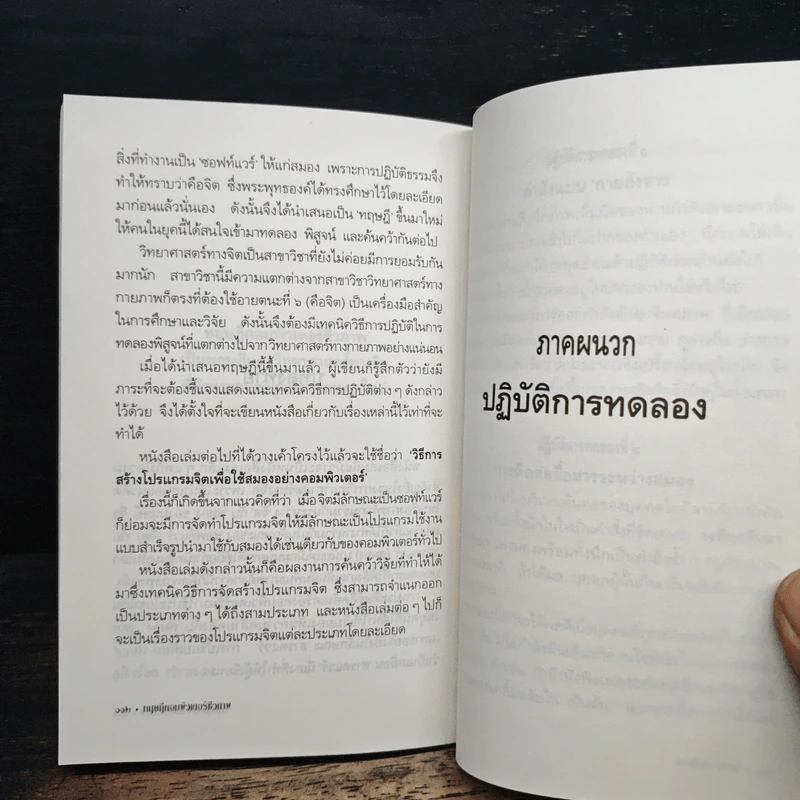 สิ่งที่ทำงานเป็น 'ซอฟท์แวร์' ให้แก่สมอง เพราะการปฏิบัติธรรมจึง
ทำให้ทราบว่าคือจิต ซึ่งพระพุทธองค์ได้ทรงศึกษาไว้โดยละเอียด
มาก่อนแล้วนั่นเอง ดังนั้นจึงได้นำเสนอเป็น 'ทฤษฎี' ขึ้นมาใหม่
ให้คนในยุคนี้ได้สนใจเข้ามาทดลอง พิสูจน์ และค้นคว้ากันต่อไป
วิทยาศาสตร์ทางจิตเป็นสาขาวิชาที่ยังไม่ค่อยมีการยอมรับกัน
มากนัก สาขาวิชานี้มีความแตกต่างจากสาขาวิชาวิทยาศาสตร์ทาง
กายภาพก็ตรงที่ต้องใช้อายตนะที่ ๖ (คือจิต) เป็นเครื่องมือสำคัญ
ในการศึกษาและวิจัย ดังนั้นจึงต้องมีเทคนิควิธีการปฏิบัติในการ
ทดลองพิสูจน์ที่แตกต่างไปจากวิทยาศาสตร์ทางกายภาพอย่างแน่นอน
เมื่อได้นำเสนอทฤษฎีนี้ขึ้นมาแล้ว ผู้เขียนก็รู้สึกตัวว่ายังมี
ภาระที่จะต้องชี้แจงแสดงแนะเทคนิควิธีการปฏิบัติต่าง ๆ ดังกล่าว
ไว้ด้วย จึงได้ตั้งใจที่จะเขียนหนังสือเกี่ยวกับเรื่องเหล่านี้ไว้เท่าที่จะ
ทำได้
หนังสือเล่มต่อไปที่ได้วางเค้าโครงไว้แล้วจะใช้ชื่อว่า 'วิธีการ
สร้างโปรแกรมจิตเพื่อใช้สมองอย่างคอมพิวเตอร์'
เรื่องนี้ก็เกิดขึ้นจากแนวคิดที่ว่า เมื่อจิตมีลักษณะเป็นซอฟท์แวร์
ก็ย่อมจะมีการจัดทำโปรแกรมจิตให้มีลักษณะเป็นโปรแกรมใช้งาน
แบบสำเร็จรูปนำมาใช้กับสมองได้เช่นเดียวกับของคอมพิวเตอร์ทั่วไป
หนังสือเล่มดังกล่าวนั้นก็คือผลงานการค้นคว้าวิจัยที่ทำให้ได้
มาซึ่งเทคนิควิธีการจัดสร้างโปรแกรมจิต ซึ่งสามารถจำแนกออก
เป็นประเภทต่าง ๆ ได้ถึงสามประเภท และหนังสือเล่มต่อ ๆ ไปก็
จะเป็นเรื่องราวของโปรแกรมจิตแต่ละประเภทโดยละเอียด
• ทฤษฎีคอมพิวเตอร์ชีวภาพ
ภาคผนวก
ปฏิบัติการทดลอง